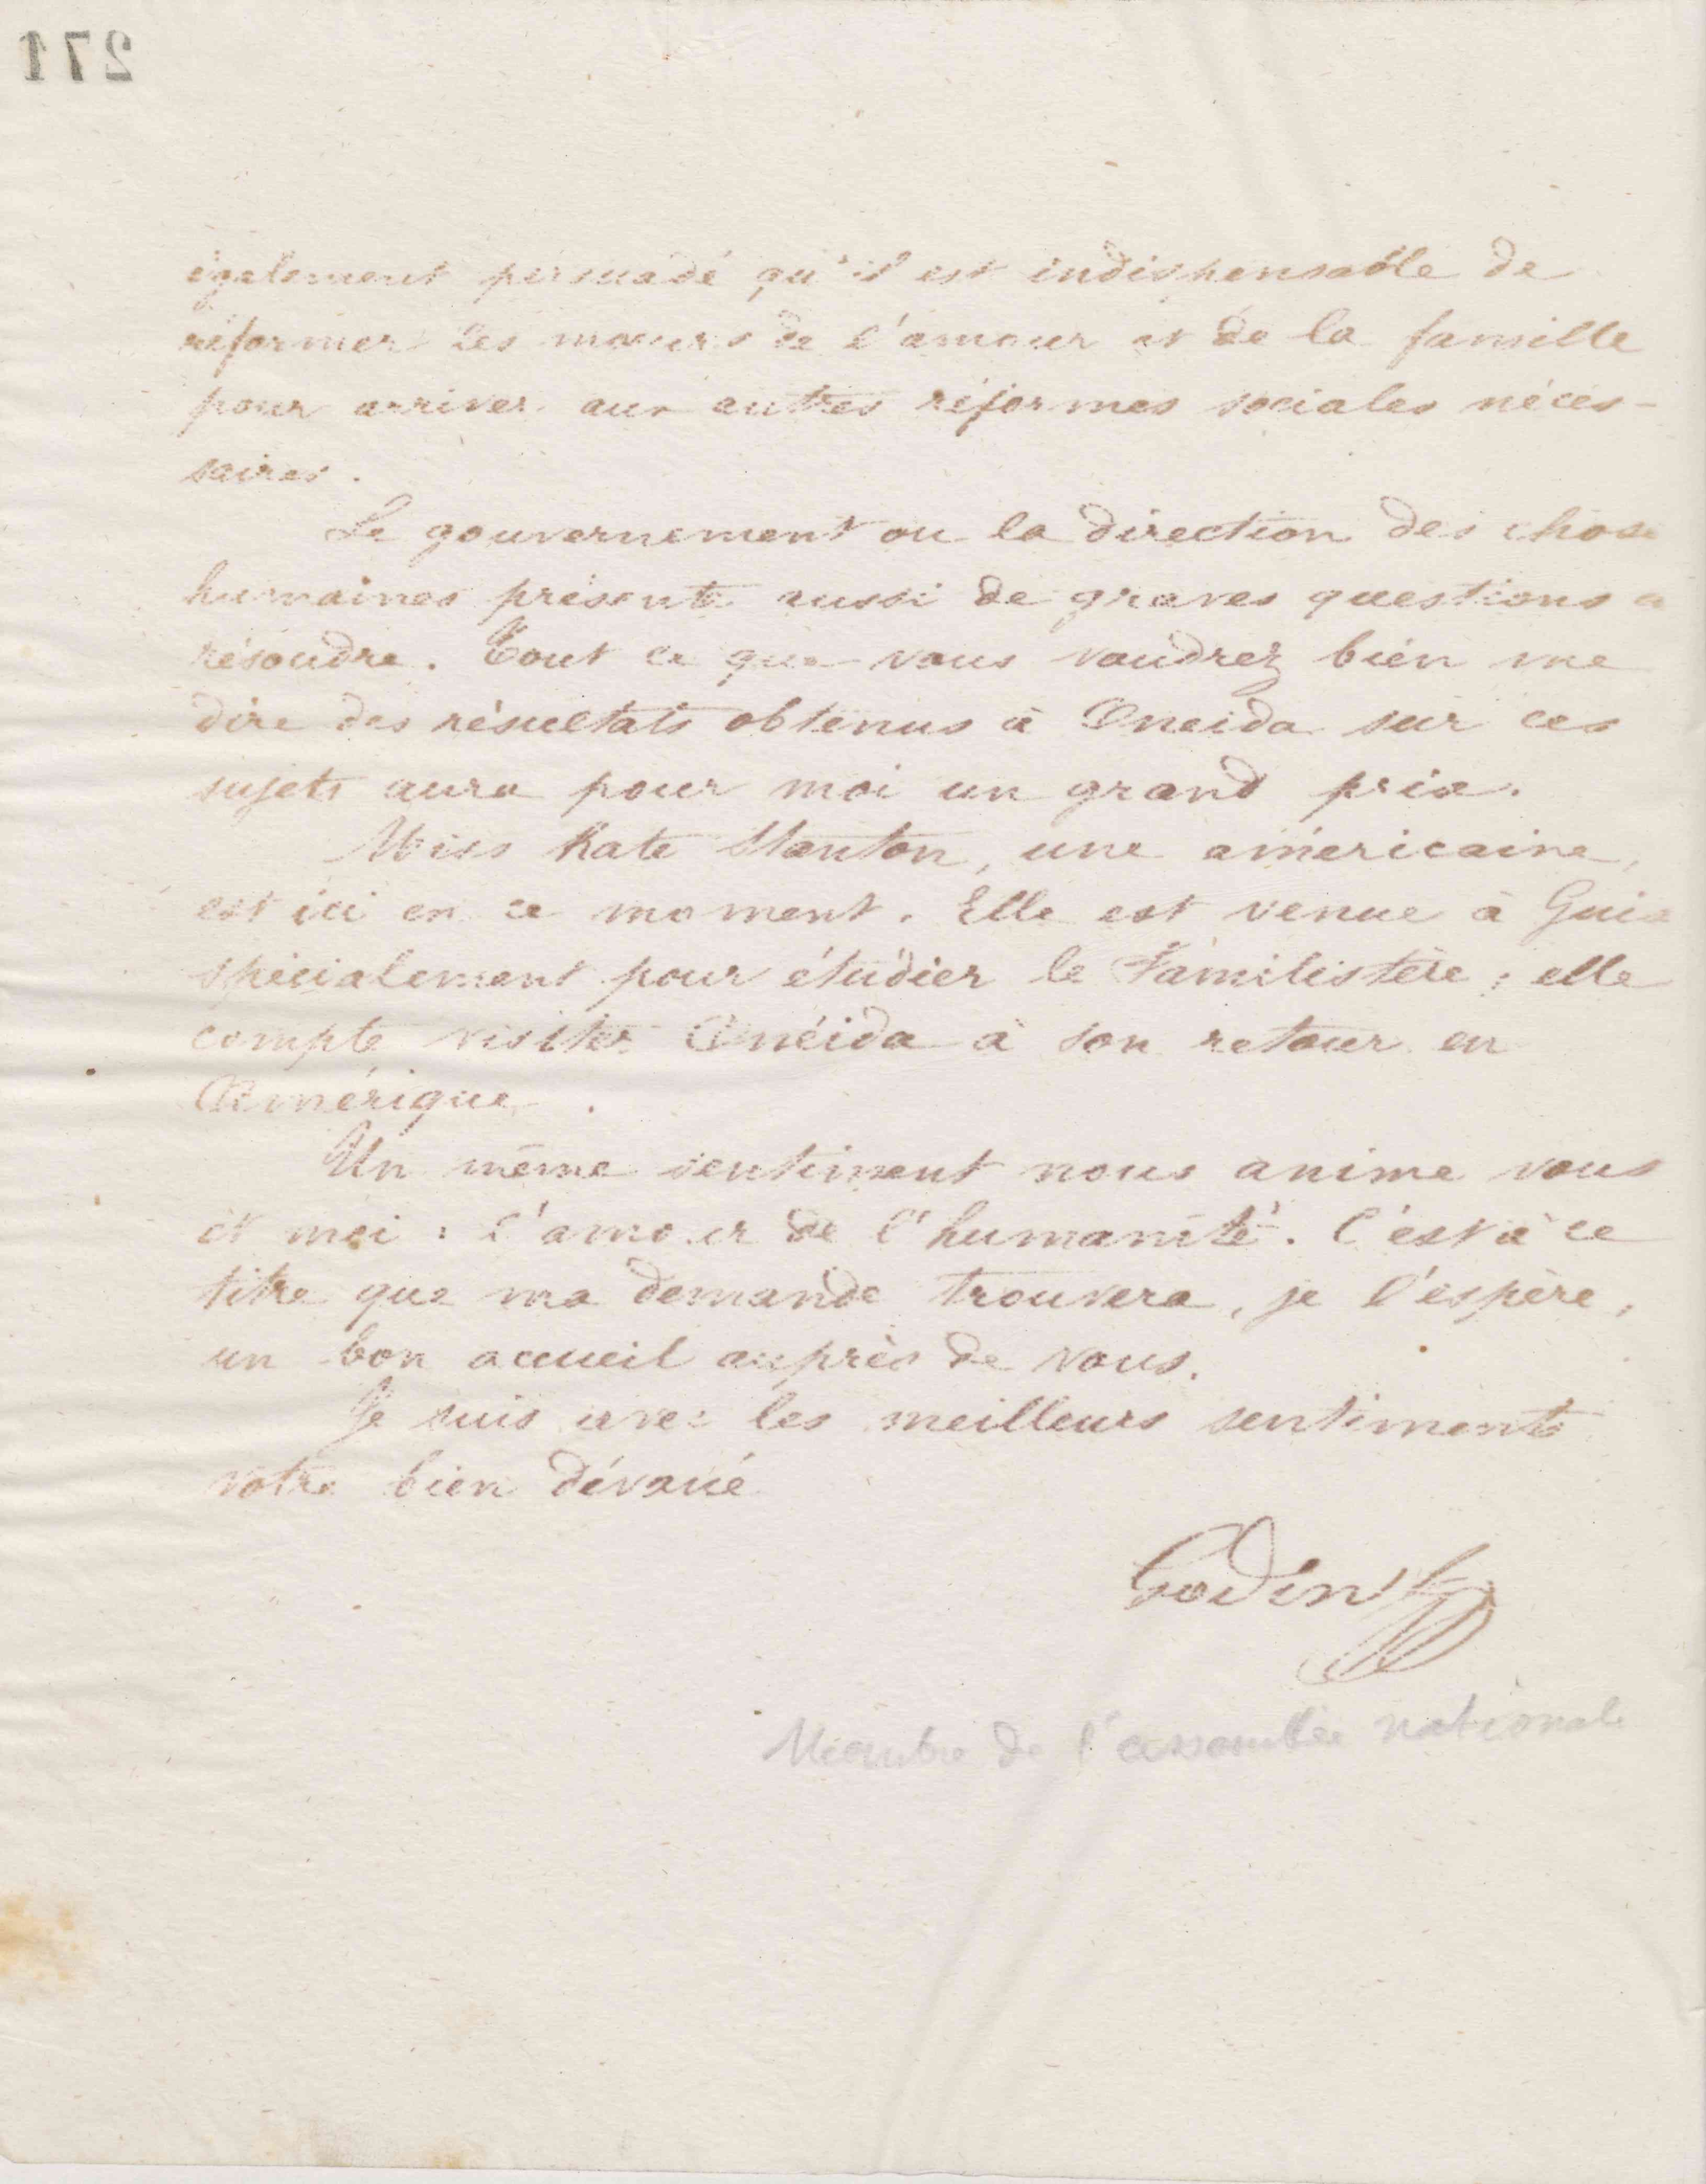 271
également persuadé qu'il est indispensable de
réformer les mœurs de l'amour et de la famille
pour arriver aux autres réformes sociales néces-
saires.
Le gouvernement ou la direction des chose
humaines présente aussi de graves questions a
résoudre. Tout ce que vous voudrez bien me
dire des résultats obtenus à Oneida sur ces
sujets aura pour moi un grand prix.
Miss Kate Stanton, une américaine,
est ici en ce moment. Elle est venue à Guise
spécialement pour étudier le Familistère ; elle
compte visiter Onéida à son retour en
Amérique.
Un même sentiment nous anime vous
et moi : l'amour de l'humanité. C'est à ce
titre que ma demande trouvera, je l'espère,
un bon accueil auprès de vous.
Je suis avec les meilleurs sentiments
votre bien dévoué
Godin
Membre de l'assemblée nationale